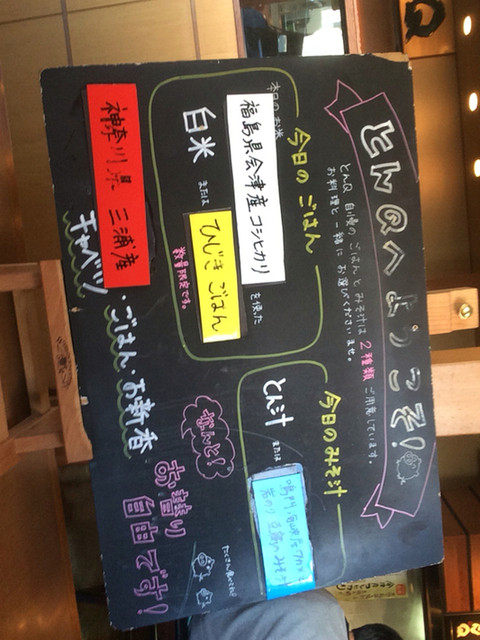 とんQへようこそ!
とんQ自慢のごはんとみそ汁は2種類ご用意しています。
お料理と一緒にお選びくださいませ。
今日のごはん
本日のお米
福島県会津産コシヒカリ
を使った
白米
または
ひじきごはん
数量限定です。
今日のみそ汁
とん汁
または
神奈川県 三浦産
キャベツ・ごはん・お新香
なんと!
お替り
自由です!